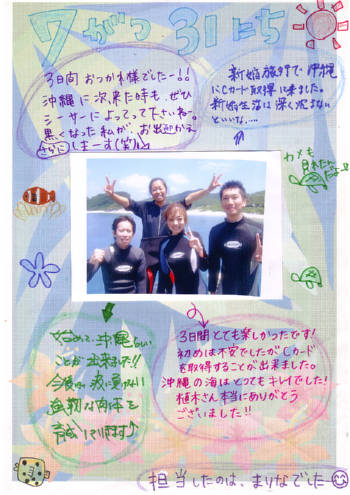 7がつ 31にち
3日間 おつかれ様でしたー!!
沖縄に次、来た時も ぜひ
シーサーによってって下さいねー。
黒くなった私が、お出迎え
さらに しまーす(笑)
新婚旅行で沖縄
にCカード取得に来ました。
新婚生活は深く沈まない
といいな、…
カメも
見れたん
だよー
始めて、沖縄らしい
ことが出来ました!!
今後は 波に負けない
強靭な肉体を
育成してりますり
3日間とても楽しかったです!
初めは不安でしたがCカード
を取得することが出来ました。
沖縄の海はとってもキレイでした!
植木さん本当にありがとう
ございました!!
担当したのは、まりなでしたー